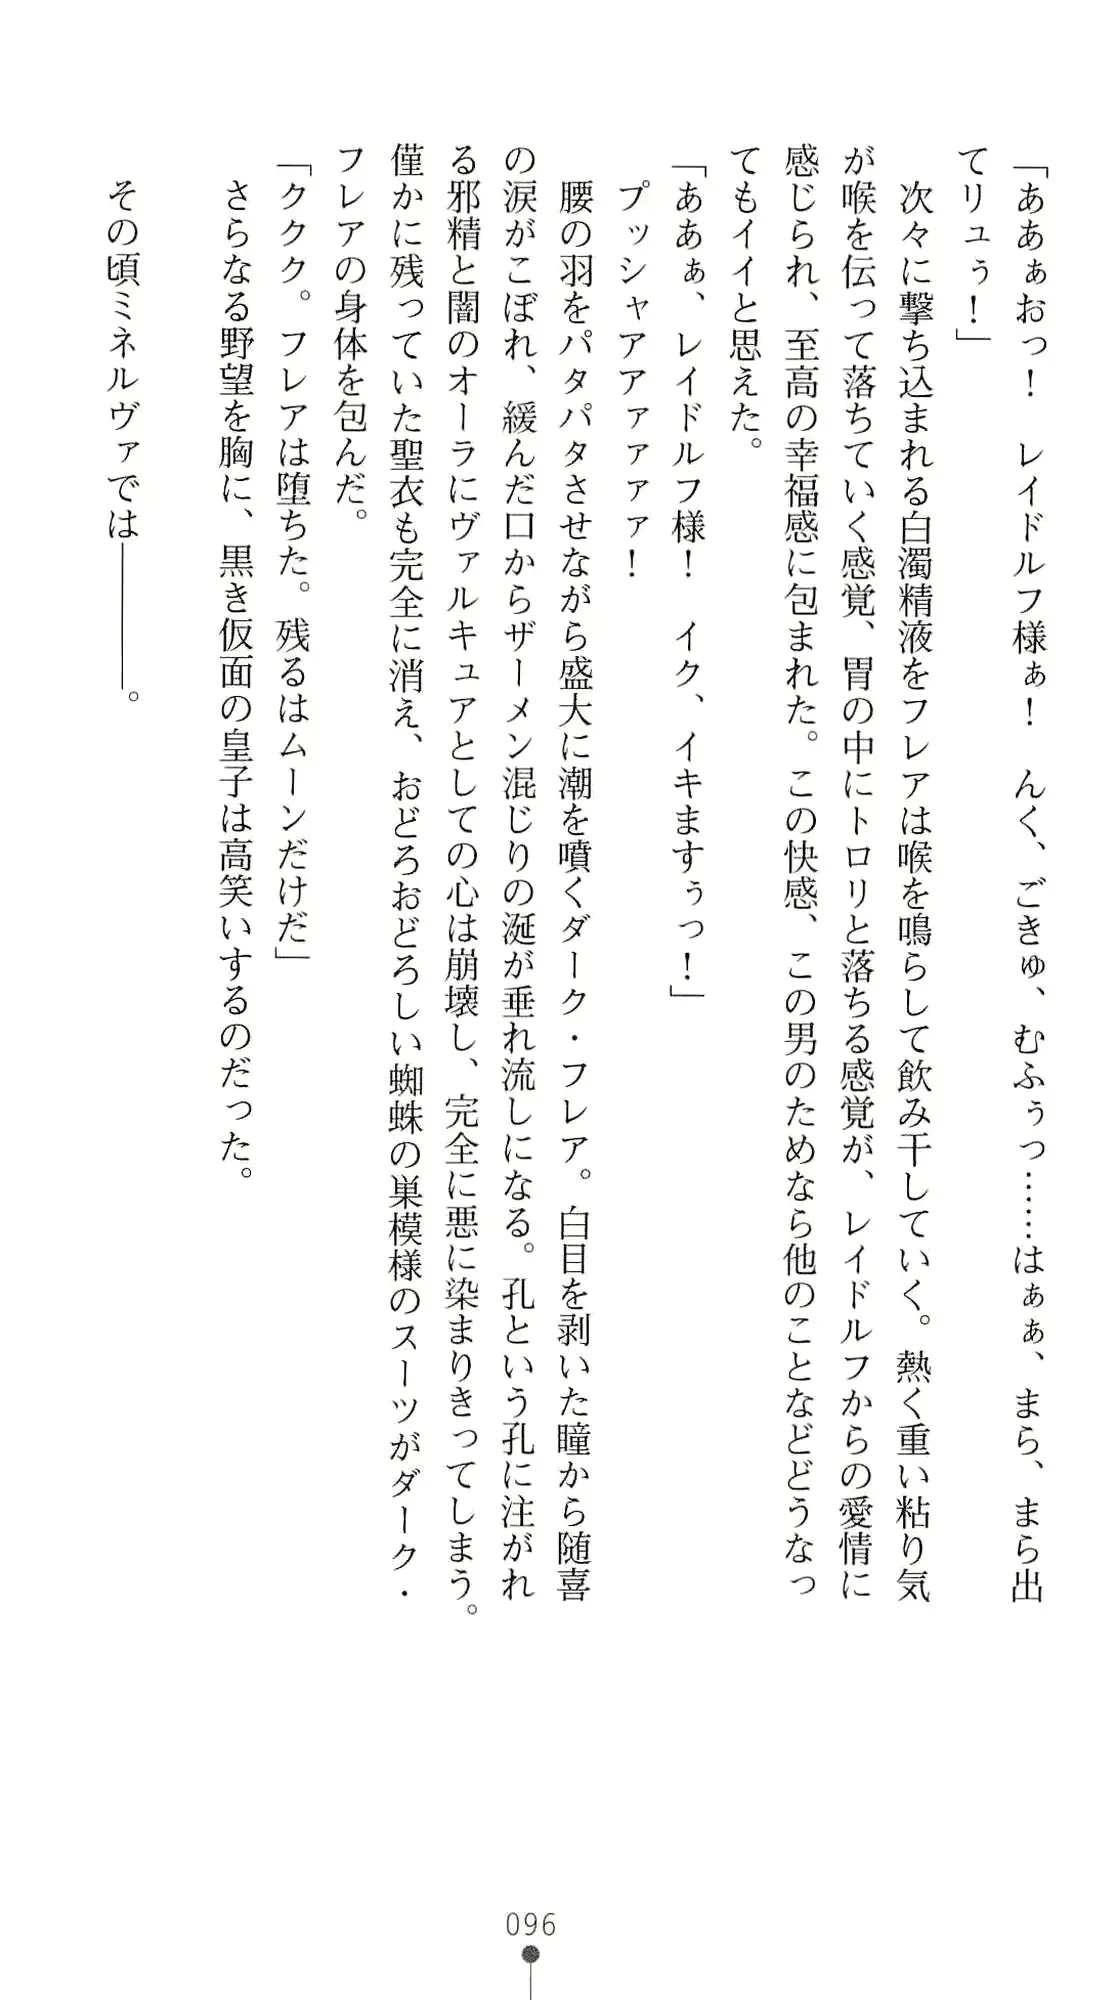 「ああぁおっ！　レイドルフ様ぁ！　んく、ごきゅ、むふぅっ……はぁぁ、まら、まら出
てリュぅ！」
　次々に撃ち込まれる白濁精液をフレアは喉を鳴らして飲み干していく。熱く重い粘り気
が喉を伝って落ちていく感覚、胃の中にトロリと落ちる感覚が、レイドルフからの愛情に
感じられ、至高の幸福感に包まれた。この快感、この男のためなら他のことなどどうなっ
てもイイと思えた。
「ああぁ、レイドルフ様！　イク、イキますぅっ！」
　プッシャアアァァァァ！
　腰の羽をパタパタさせながら盛大に潮を噴くダーク・フレア。白目を剥いた瞳から随喜
の涙がこぼれ、緩んだ口からザーメン混じりの涎が垂れ流しになる。孔という孔に注がれ
る邪精と闇のオーラにヴァルキュアとしての心は崩壊し、完全に悪に染まりきってしまう。
僅かに残っていた聖衣も完全に消え、おどろおどろしい蜘蛛の巣模様のスーツがダーク・
フレアの身体を包んだ。
「ククク。フレアは堕ちた。残るはムーンだけだ」
　さらなる野望を胸に、黒き仮面の皇子は高笑いするのだった。
　その頃ミネルヴァでは――――。
096